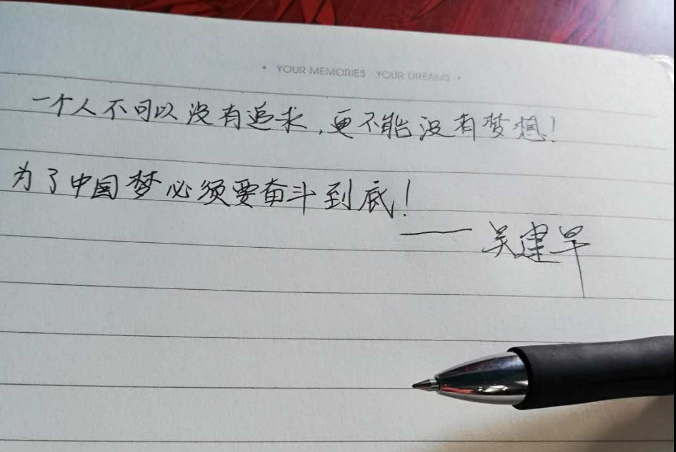 • YOUR MEMORIES YOUR DREAMS •
一个人不可以没有追求,更不能没有梦想!
为了中国梦必须要奋斗到底!
——吴建早